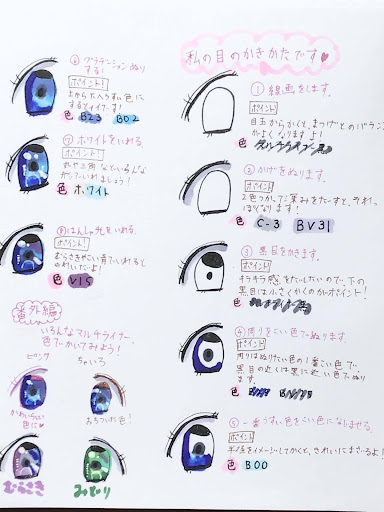 私の目のかきかたです♥
① 線画をします。
ポイント
目玉からかくと、まつげとのバランス
がよくなりますよ!
② かげをぬります。
ポイント
C-3 BV31
③ 黒目をかきます。
ポイント
キラキラ感をだしたいので、下の
黒目は小さくかくのがポイント!
④ 周りをこい色でぬります。
ポイント
周りはぬりたい色の1番こい色で、
黒目の近くは黒に近い色でぬり
ます。
色
⑤ 一番うすい色をこい色になじませる。
ポイント
半円をイメージしてかくと、きれいにまざるよ!
色 B00
⑥ グラデーションぬり
する!
ポイント
上からだんだんうすい色に
するとイイです!
色 B23 B02
⑦ ホワイトをいれる
ポイント
丸や三角などいろんな
かたちでいれましょう!
色 ホワイト
⑧ はんしゃ光をいれる。
ポイント!
むらさきやこい青でいれると
かわいいだよ!
色 V15
番外編
いろんなマルチライナー、
色でかいてみよう!
ピンク
ちゃいろ
かわいらしい
色に♥
おちついた色!
むらさき
みどり